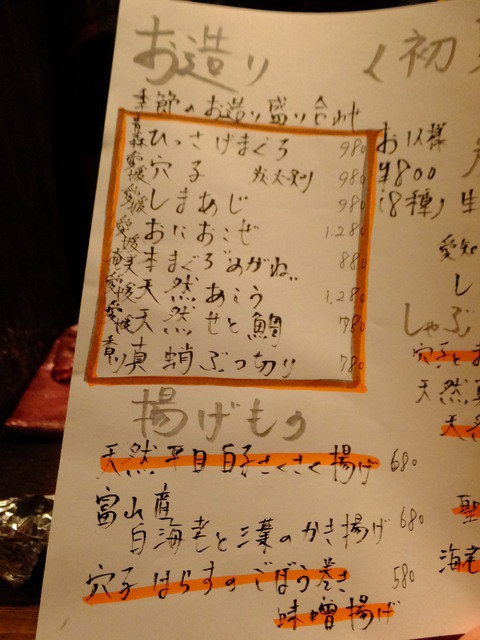 お造り
季節のお造り盛り合わせ
お1人様
¥800
(8種)
青森 ひっさげまぐろ 980
愛媛 穴子 炭火炙り 980
愛媛 しまあじ 980
愛媛 おにおこぜ 1.280
奄美 本まぐろ"めがね" 880
愛媛 天然あこう 1.280
愛媛 天然せと鯛 780
香川 真蛸ぶつ切り 780
揚げもの
天然平目白子さくさく揚げ 680
富山産
白海老と三葉のかき揚げ 680
穴子はらすのごぼう巻き 580
味噌揚げ
く初
生
愛知
し
しゃぶ
穴子と
天然
天然
海老